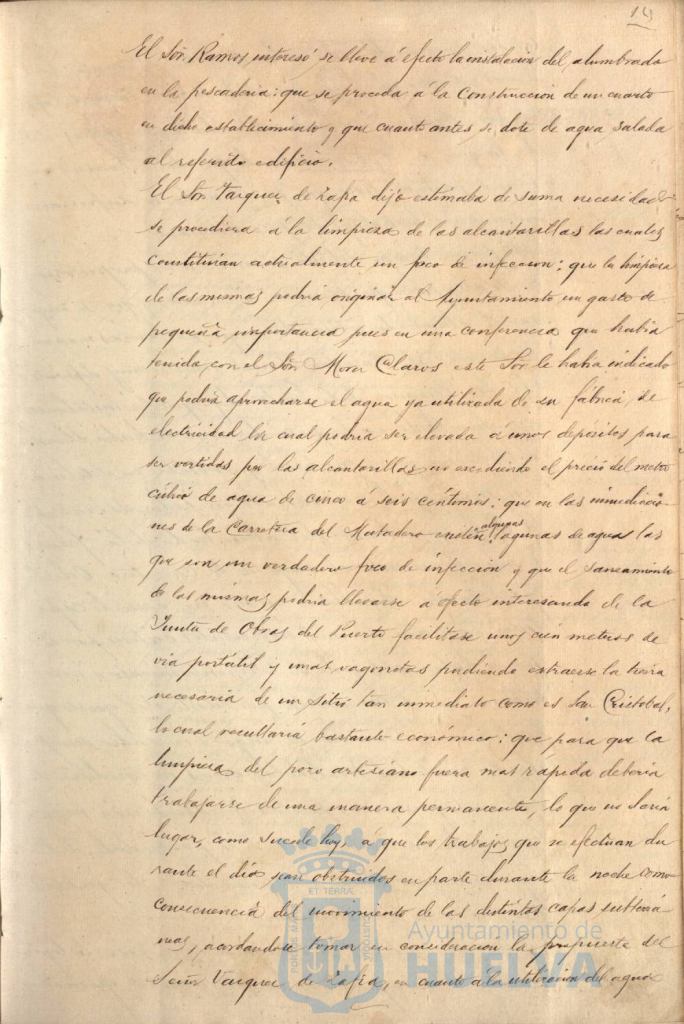 19
El Sór. Ramos interesó se lleve á efecto la instalacion del alumbrado
en la pescaderia: que se proceda á la Construccion de un cuarto
en dicho establecimiento y que cuanto antes se dote de agua salada
al referido edificio.
El Sór. Vazquez de Zafra dijo estimaba de suma necesidad
se procediera á la limpieza de las alcantarillas las cuales
constituian actualmente un foco de infeccion: que la limpieza
de las mismas podria originar al Ayuntamiento un gasto de
pequeña importancia pues en una conferencia que habia
tenido con el Sór. Mora Claros este Sor. le habia indicado
que podria aprovecharse el agua ya utilizada de su fábrica de
electricidad la cual podria ser elevada á unos depósitos para
ser vertidas por las alcantarillas no excediendo el precio del metro
cúbico de agua de cinco á seis céntimos: que en las inmediacio-
nes de la Carretera del Matadero existen algunas lagunas de aguas las
que son un verdadero foco de infeccion y que el saneamiento
de las mismas podria llevarse á efecto interesando de la
Junta de Obras del Puerto facilitase unos cien metros de
via portátil y unas vagonetas pudiendo extraerse la tierra
necesaria de un sitio tan inmediato como es San Cristobal,
lo cual resultaria bastante económico: que para que la
limpieza del pozo artesiano fuera mas rápida deberia
trabajarse de una manera permanente, lo que no daria
lugar, como sucede hoy, á que los trabajos que se efectuan du
rante el dia sean obstruidos en parte durante la noche como
consecuencia del movimiento de las distintas capas subterrá
neas, acordandose tomar en consideracion la propuesta del
Señor Vazquez de Zafra, en cuanto á la utilizacion del agua
Ayuntamiento de
HUELVA